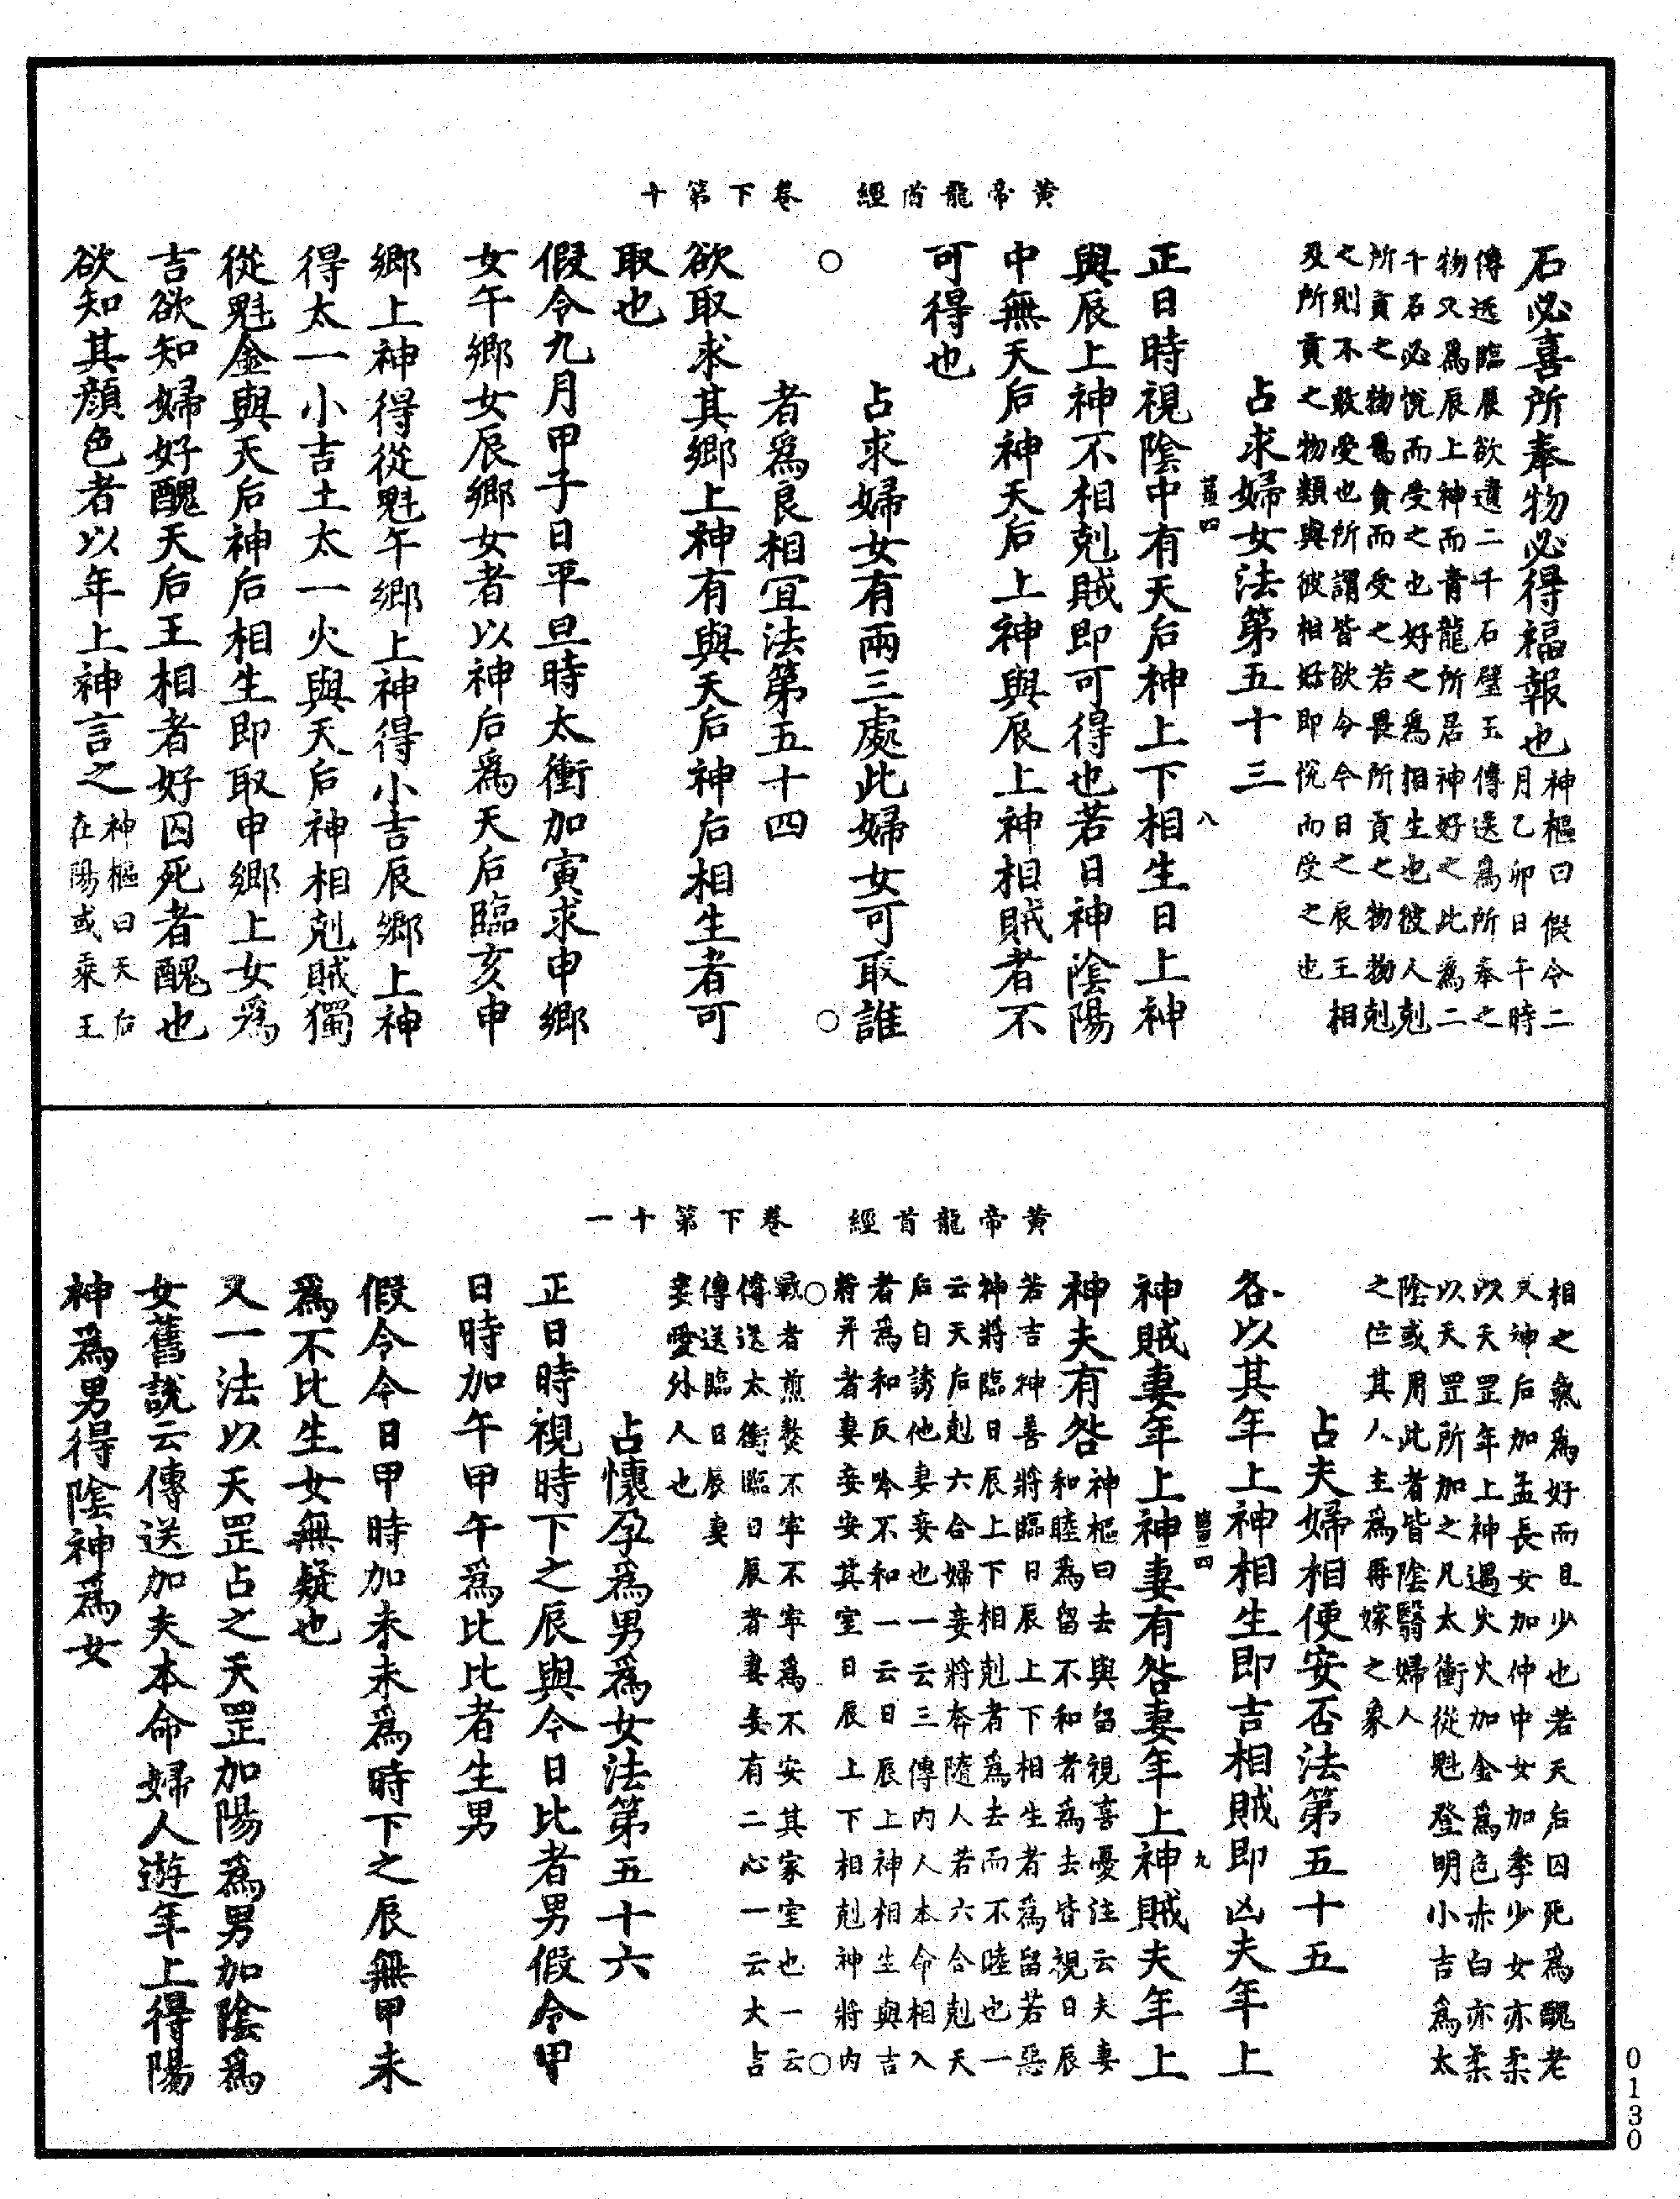 黃帝龍首經　卷下第十
石必喜所奉物必得福報也神樞曰假令二
月乙卯日午時
傳送臨辰欲遺二千石璧玉傳送為所奉之
物又為辰上神而青龍所居神好之此為二
千石必悅而受之也好之為相生也彼人剋
所貢之物為貪而受之若畏所貢之物物剋
之則不敢受也所謂皆欲令今日之辰王相
及所貢之物類與彼相好即悅而受之也
占求婦女法第五十三
八
正日時視陰中有天后神上下相生日上神
與辰上神不相剋賊即可得也若日神陰陽
中無天后神天后上神與辰上神相賊者不
可得也
占求婦女有兩三處此婦女可取誰
者為良相宜法第五十四
欲取求其鄉上神有與天后神后相生者可
取也
假令九月甲子日平旦時太衝加寅求申鄉
女午鄉女辰鄉女者以神后為天后臨亥申
鄉上神得從魁午鄉上神得小吉辰鄉上神
得太一小吉土太一火與天后神相剋賊獨
從魁金與天后神后相生即取申鄉上女為
吉欲知婦好醜天后王相者好囚死者醜也
欲知其顏色者以年上神言之神樞曰天后
在陽或乘王
黃帝龍首經　卷下第十一
相之氣為好而且少也若天后囚死為醜老
又神后加孟長女加仲中女加季少女亦柔
以天罡年上神遇火火加金為色赤白亦柔
以天罡所加之凡太衝從魁登明小吉為太
陰或用此者皆陰翳婦人
之位其人主為再嫁之象
占夫婦相便安否法第五十五
各以其年上神相生即吉相賊即凶夫年上
九
神賊妻年上神妻有咎妻年上神賊夫年上
神夫有咎神樞曰去與留視喜憂注云夫妻
和睦為留不和者為去皆視日辰
若吉神善將臨日辰上下相生者為留若惡
神將臨日辰上下相剋者為去而不睦也一
云天后剋六合婦妾將奔隨人若六合剋天
后自誘他妻妾也一云三傳內人本命相入
者為和反吟不和一云日辰上神相生與吉
將并者妻妾安其室日辰上下相剋神將內
戰者煎熬不寧不寧為不安其家室也一云
傳送太衝臨日辰者妻妾有二心一云大吉
傳送臨日辰妻
妾愛外人也
占懷孕為男為女法第五十六
正日時視時下之辰與今日比者男假令甲
日時加午甲午為比比者生男
假令今日甲時加未未為時下之辰無甲未
為不比生女無疑也
又一法以天罡占之天罡加陽為男加陰為
女舊說云傳送加夫本命婦人遊年上得陽
神為男得陰神為女
0130